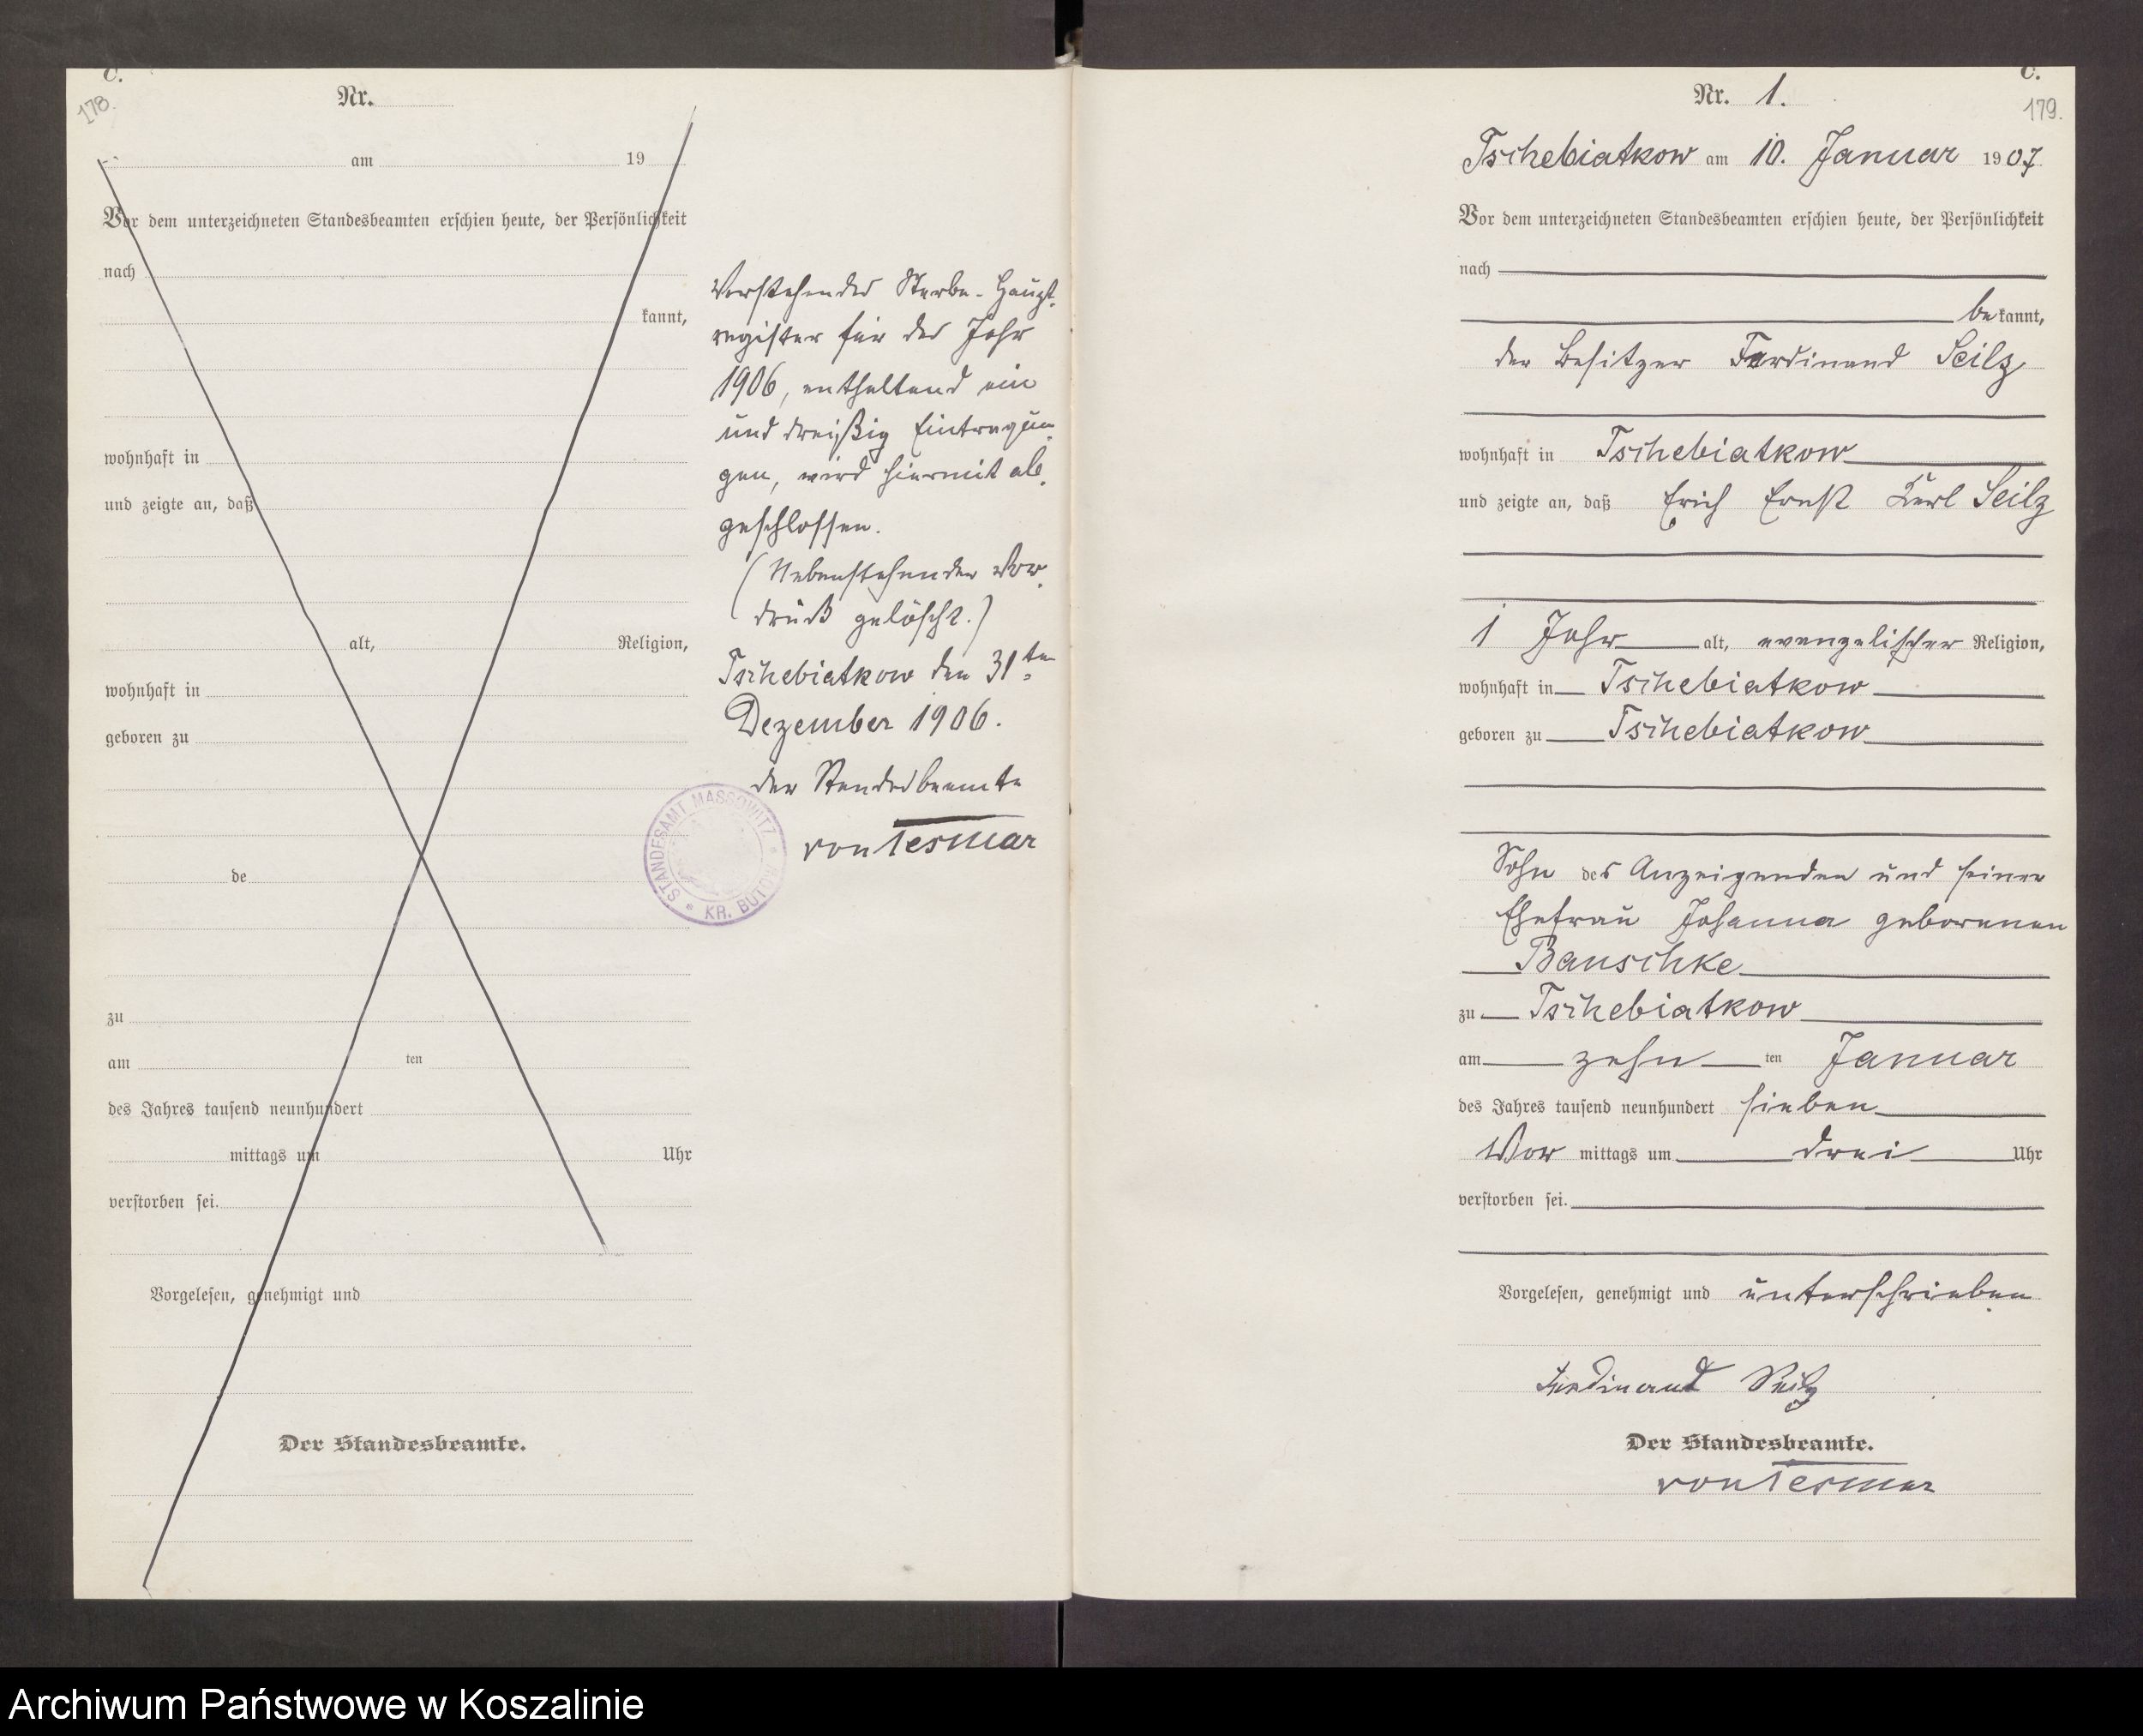 C.
178.
Nr.
am 19
Vor dem unterzeichneten Standesbeamten erschien heute, der Persönlichkeit
nach
kannt,
wohnhaft in
und zeigte an, daß
alt, Religion,
wohnhaft in
geboren zu
de
zu
am ten
des Jahres tausend neunhundert
mittags um Uhr
verstorben sei.
Vorgelesen, genehmigt und
Der Standesbeamte.
Vorstehendes Sterbe-Haupt-
register für das Jahr
1906, enthaltend ein
und dreißig Eintragun-
gen, wird hiermit ab-
geschlossen.
(Nebenstehender Vor-
druck gelöscht.)
Tschebiatkow den 31ten
Dezember 1906.
der Standesbeamte
von Tesmar
STANDESAMT MASSOWITZ * KR. BÜTOW *
C.
179.
Nr. 1.
Tschebiatkow am 10. Januar 1907
Vor dem unterzeichneten Standesbeamten erschien heute, der Persönlichkeit
nach
bekannt,
der Besitzer Ferdinand Seilz
wohnhaft in Tschebiatkow
und zeigte an, daß Erich Ernst Karl Seilz
1 Jahr alt, evangelischer Religion,
wohnhaft in Tschebiatkow
geboren zu Tschebiatkow
Sohn des Anzeigenden und seiner
Ehefrau Johanna geborenen
Banschke
zu Tschebiatkow
am zehn ten Januar
des Jahres tausend neunhundert sieben
Vor mittags um drei Uhr
verstorben sei.
Vorgelesen, genehmigt und unterschrieben
Ferdinand Seilz
Der Standesbeamte.
von Tesmar
Archiwum Państwowe w Koszalinie